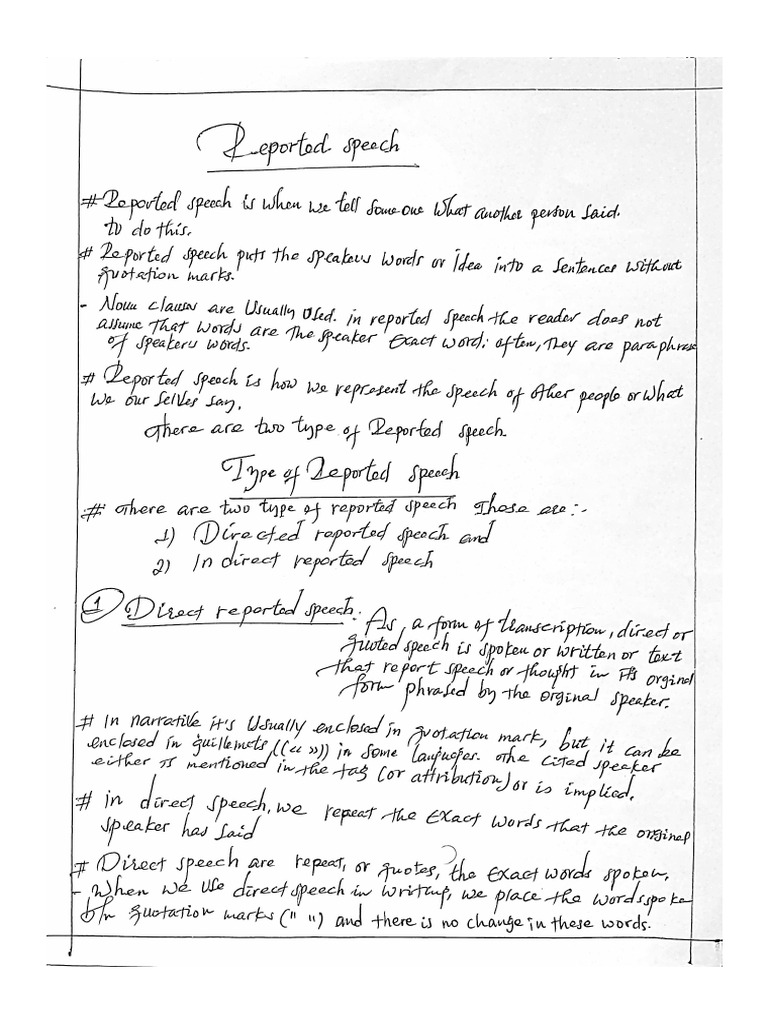 Reported speech
# Reported speech is when we tell someone what another person said.
to do this.
# Reported speech puts the speakers words or idea into a sentences without
quotation marks.
- Noun clauses are usually used. in reported speech the reader does not
assume that words are the speaker exact word; often, they are paraphrase
of speakers words.
# Reported speech is how we represent the speech of other people or what
we our selves say.
there are two type of Reported speech.
Type of Reported speech
# there are two type of reported speech those are:-
1) Directed reported speech and
2) In direct reported speech
① Direct reported speech: As, a form of transcription, direct or
quoted speech is spoken or written or text
that report speech or thought in its orginal
form phrased by the orginal speaker.
# In narrative it's usually enclosed in quotation mark, but it can be
enclosed in guillemots ((« »)) in some languages. the cited speaker
either is mentioned in the tag (or attribution) or is implied.
# in direct speech, we repeat the exact words that the orginal
speaker has said
# Direct speech are repeat, or quotes, the exact words spoken,
- when we use direct speech in writing, we place the words spoke
b/n quotation marks (" ") and there is no change in these words.